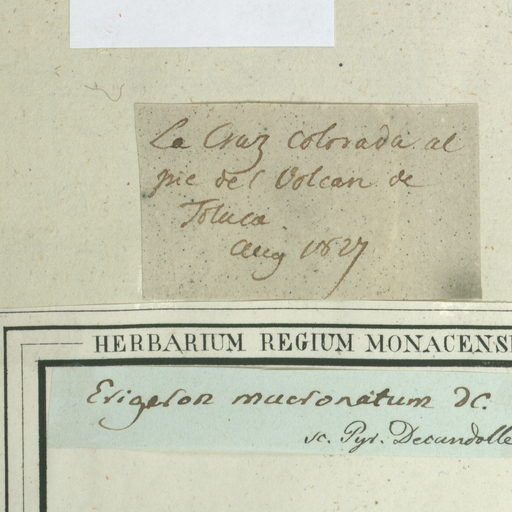 La Cruz colorada al
pie del Volcan de
Toluca
Aug 1827
HERBARIUM REGIUM MONACENS
Erigeron mucronatum DC.
sc. Pyr. Decandolle